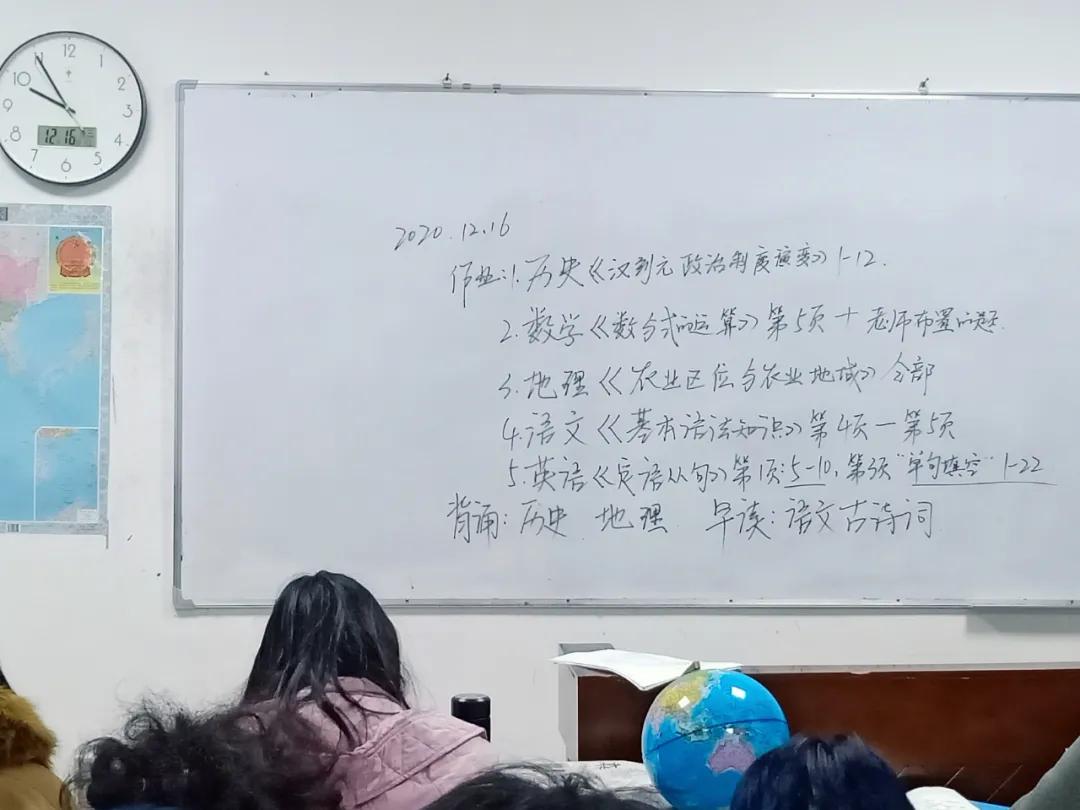 12
1
2
3
4
5
6
7
8
9
10
12 16
2020.12.16
作业：1.历史《汉到元政治制度演变》1-12.
2.数学《数与式的运算》第5页+老师布置的题.
3.地理《农业区位与农业地域》全部
4.语文《基本语法知识》第4页—第5页
5.英语《定语从句》第1页:5-10,第3页"单句填空"1-22
背诵:历史 地理 早读:语文古诗词